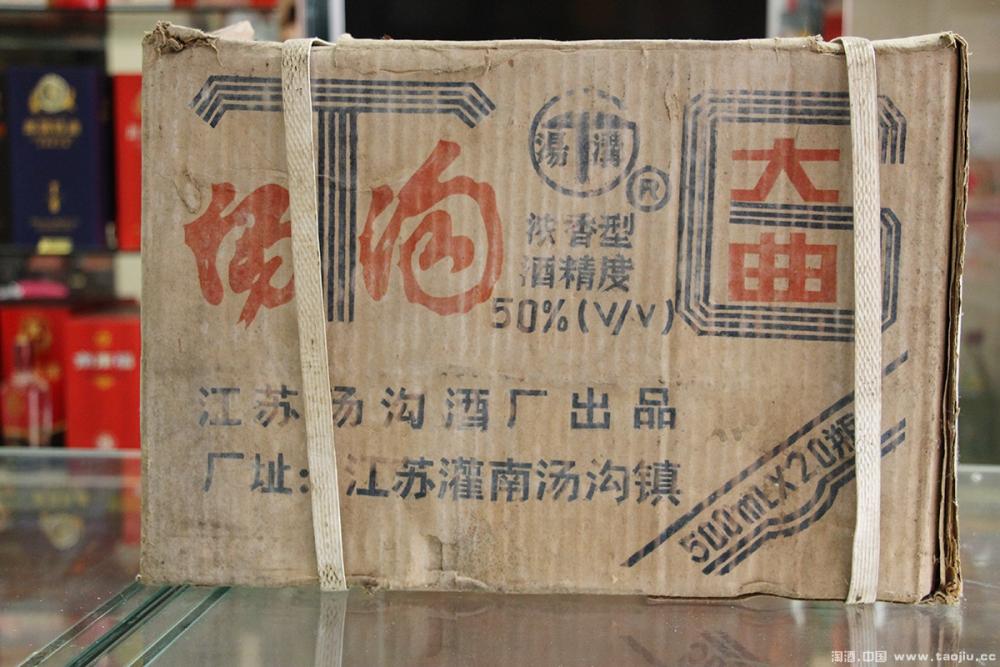 汤沟
湯溝
R
浓香型
酒精度
50%(V/V)
大曲
江苏汤沟酒厂出品
厂址:江苏灌南汤沟镇
500mL×20瓶
淘酒.中国 www.taojiu.cc